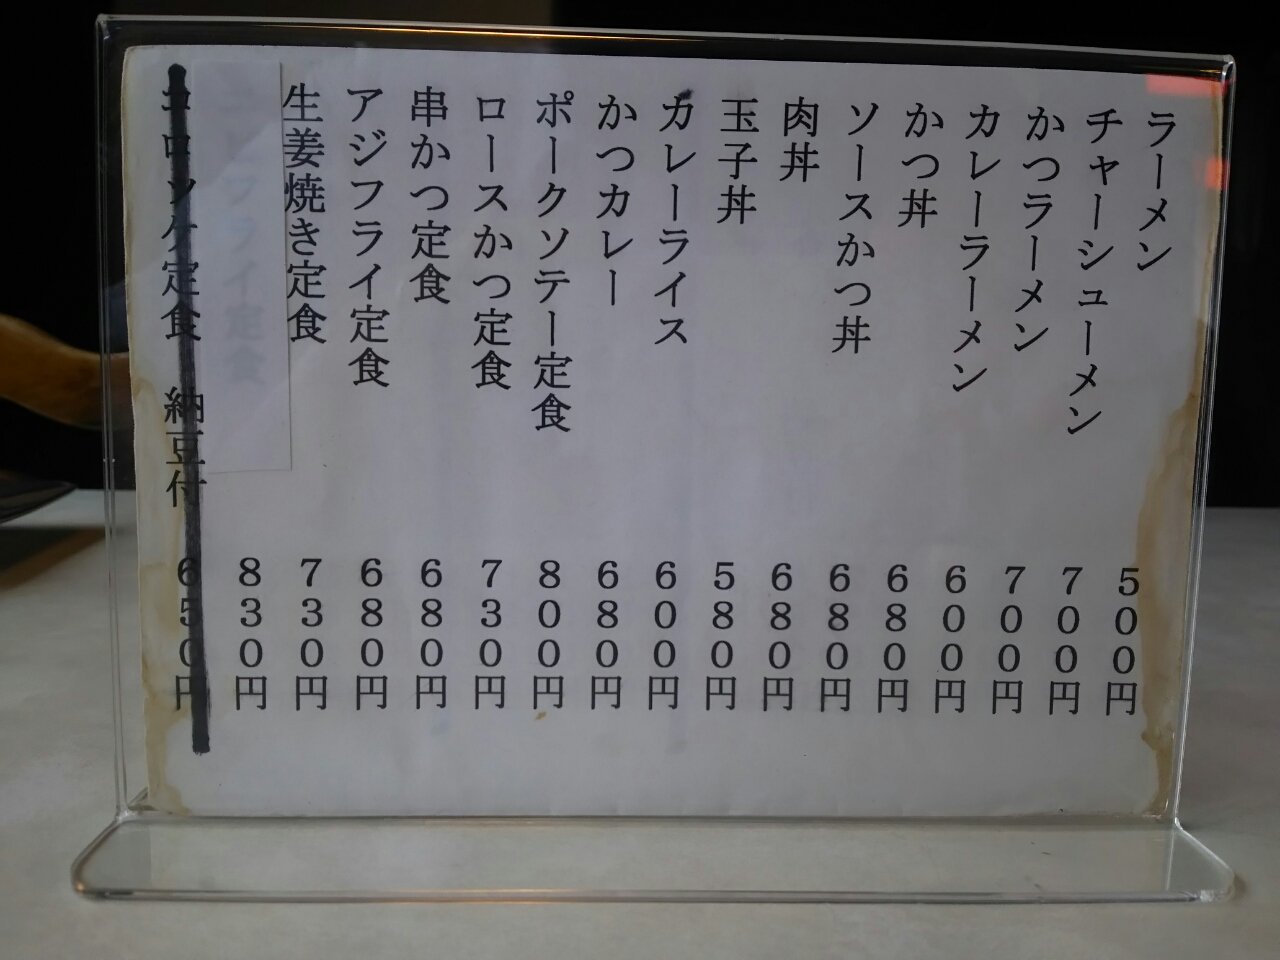 ラーメン 500円
チャーシューメン 700円
かつラーメン 700円
カレーラーメン 600円
かつ丼 680円
ソースかつ丼 680円
肉丼 680円
玉子丼 580円
カレーライス 600円
かつカレー 680円
ポークソテー定食 800円
ロースかつ定食 730円
串かつ定食 680円
アジフライ定食 680円
生姜焼き定食 730円
フライ定食 830円
コロッケ定食 納豆付 650円